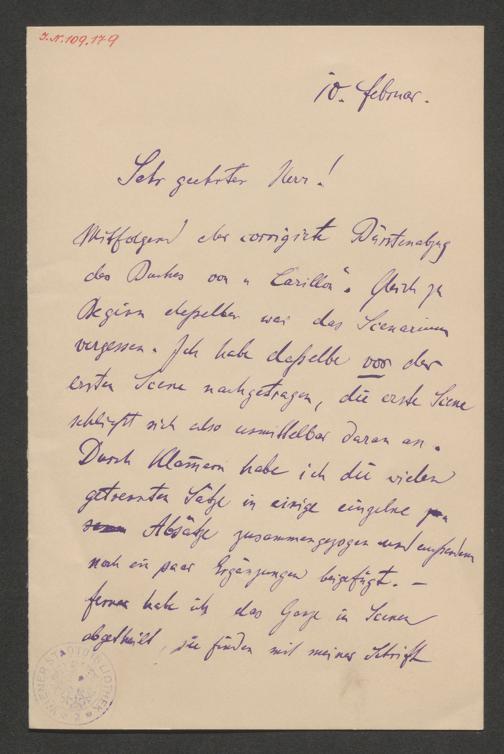 J.N. 109.179
10. Februar.
Sehr geehrter Herr!
Mitfolgend der corrigirte Bürstenabzug
des Buches von „Carillon". Gleich zu
Beginn desselben war das Scenarium
vergessen. Ich habe dasselbe vor der
ersten Scene nachgetragen, die erste Scene
schließt sich also unmittelbar daran an.
Durch Klammern habe ich die vielen
getrennten Sätze in einige einzelne
Absätze zusammengezogen und außerdem
noch ein paar Ergänzungen beigefügt. –
ferner habe ich das Ganze in Scenen
abgetheilt, sie finden mit meiner Schrift
WIENER STADTBIBLIOTHEK